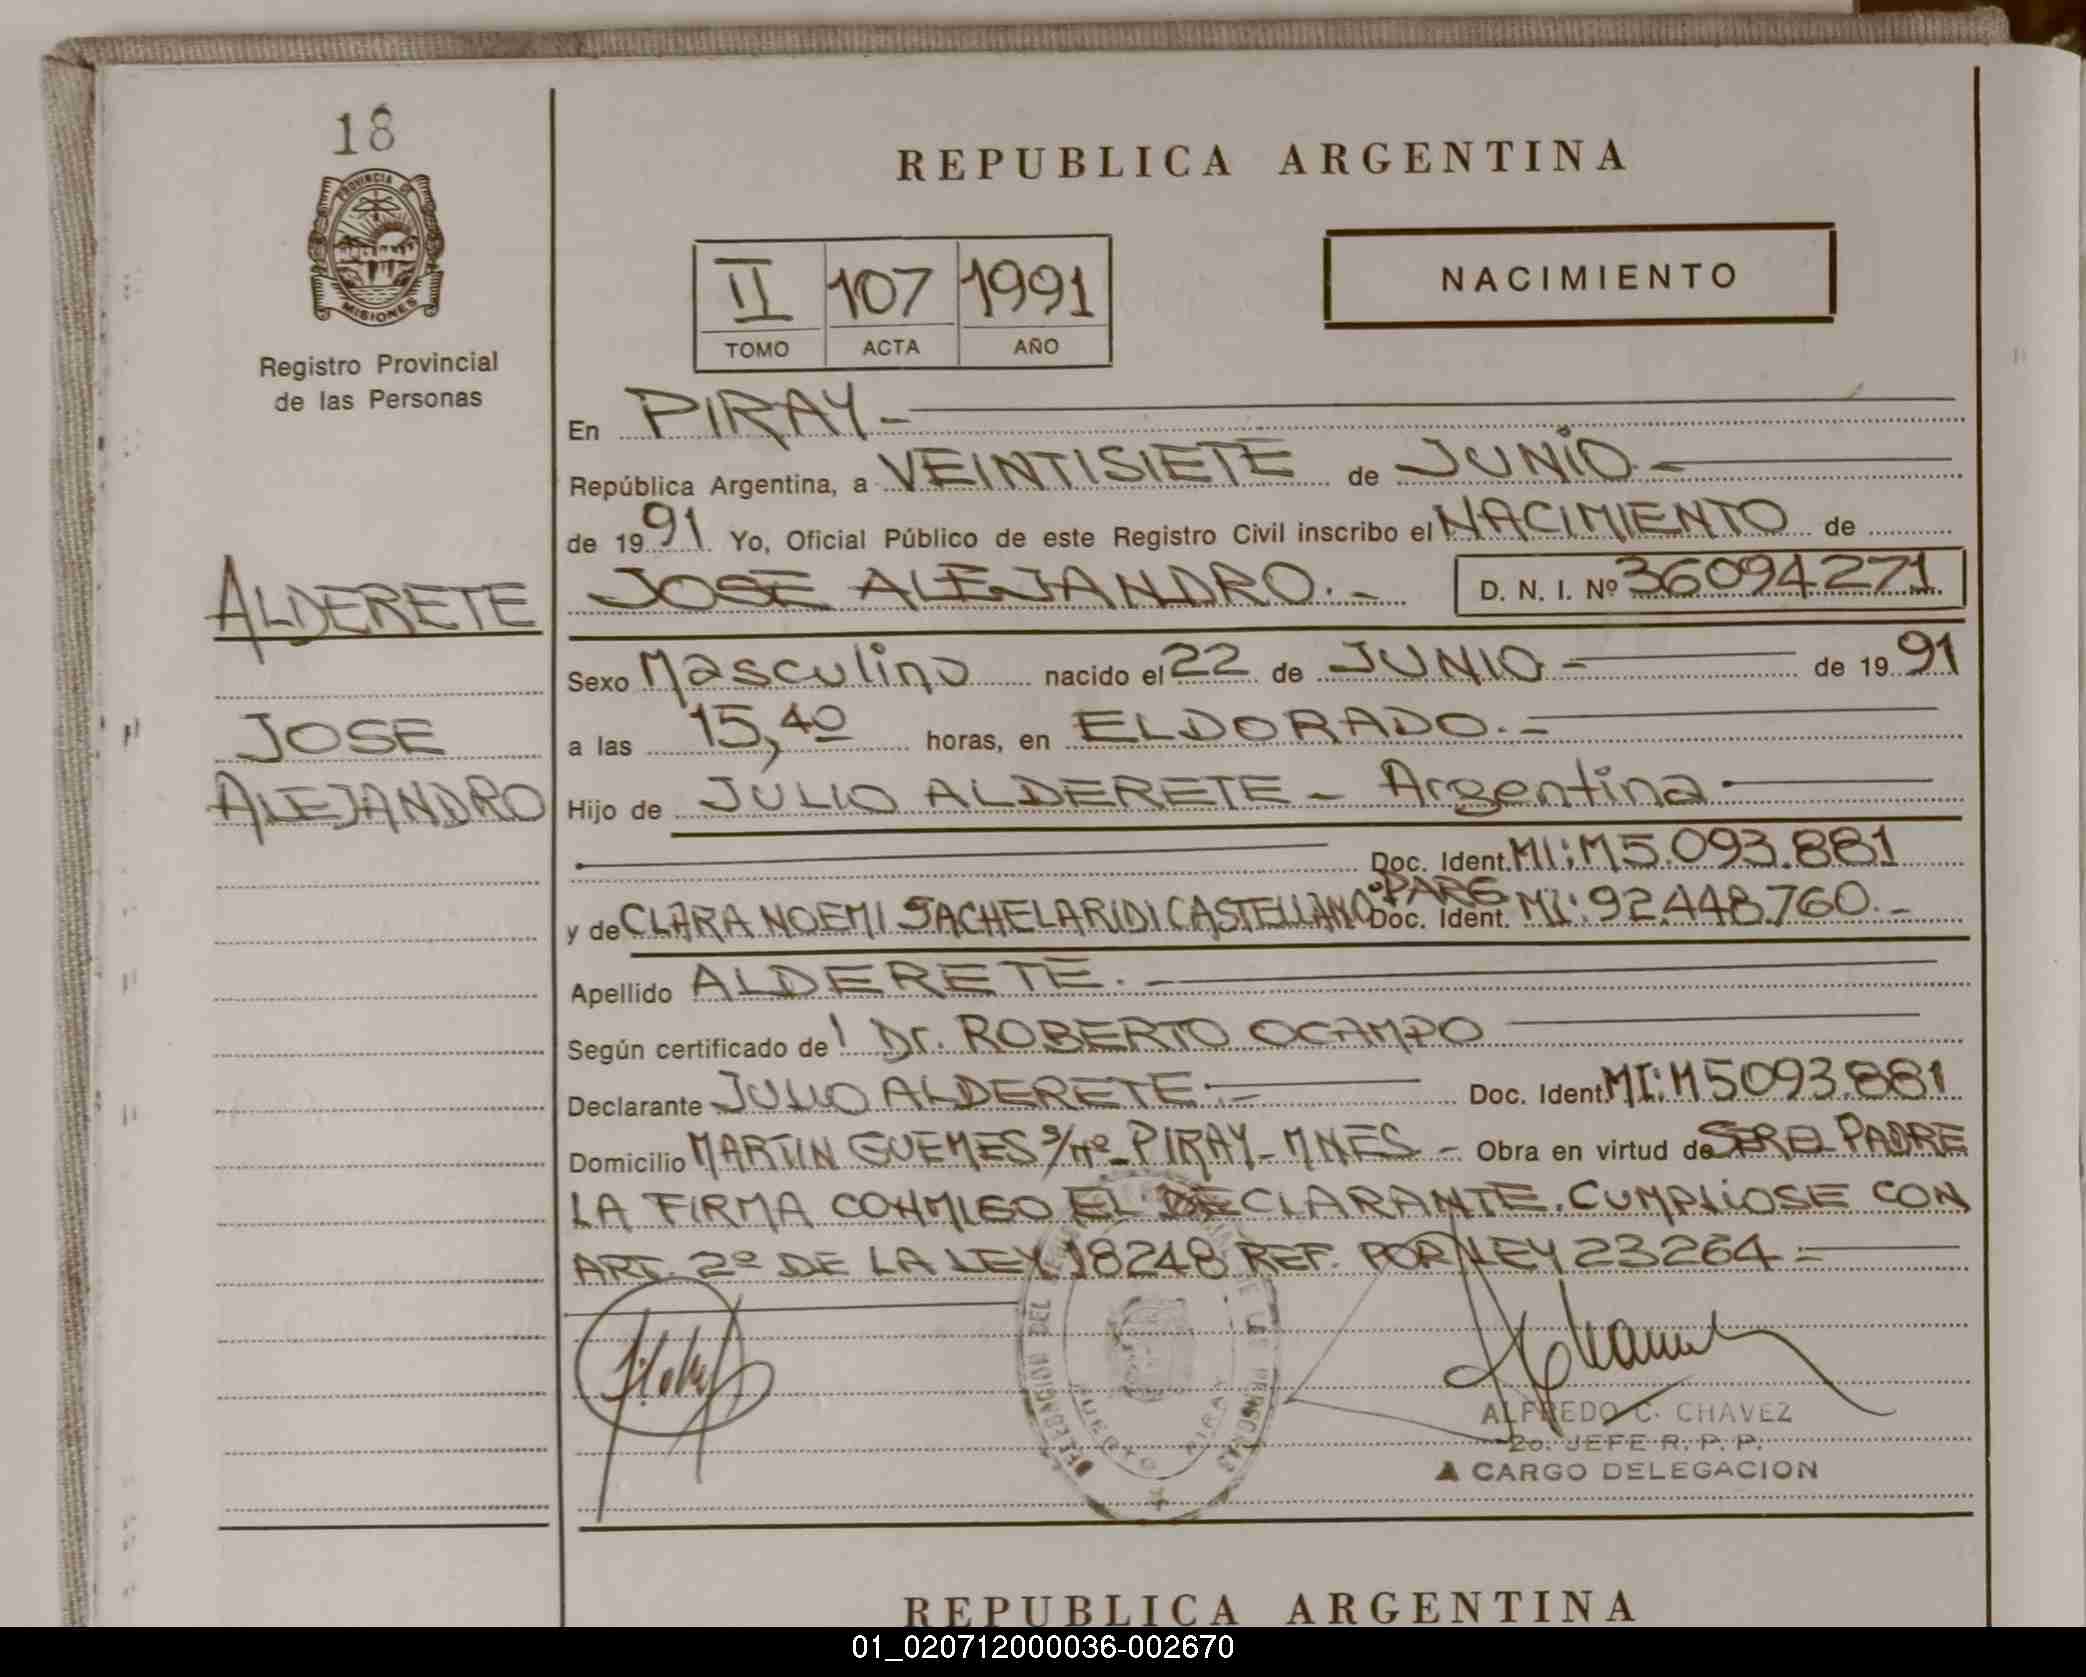 18
PROVINCIA DE
MISIONES
Registro Provincial
de las Personas
ALDERETE
JOSE
ALEJANDRO
REPUBLICA ARGENTINA
II 107 1991
TOMO ACTA AÑO
NACIMIENTO
En PIRAY.-
República Argentina, a VEINTISIETE de JUNIO.-
de 1991 Yo, Oficial Público de este Registro Civil inscribo el NACIMIENTO de
JOSE ALEJANDRO.- D. N. I. Nº 36094271
Sexo Masculino nacido el 22 de JUNIO - de 19 91
a las 15,40 horas, en ELDORADO.-
Hijo de JULIO ALDERETE - Argentina
Doc. Ident. MI:M5.093.881
y de CLARA NOEMI SACHELARIDI CASTELLANO PARG Doc. Ident. MI: 92.448.760.-
Apellido ALDERETE.-
Según certificado del Dr. ROBERTO OCAMPO
Declarante JULIO ALDERETE.- Doc. Ident. MI:M5093.881
Domicilio MARTIN GUEMES s/nº- PIRAY- MNES - Obra en virtud de SER EL PADRE
LA FIRMA CONMIGO EL DECLARANTE. CUMPLIOSE CON
ART. 2º DE LA LEY 18248 REF. POR LEY 23264 -
DELEGACION DEL
PIRAY
ALFREDO C. CHAVEZ
2o. JEFE R. P. P.
A CARGO DELEGACION
REPUBLICA ARGENTINA
01_020712000036-002670